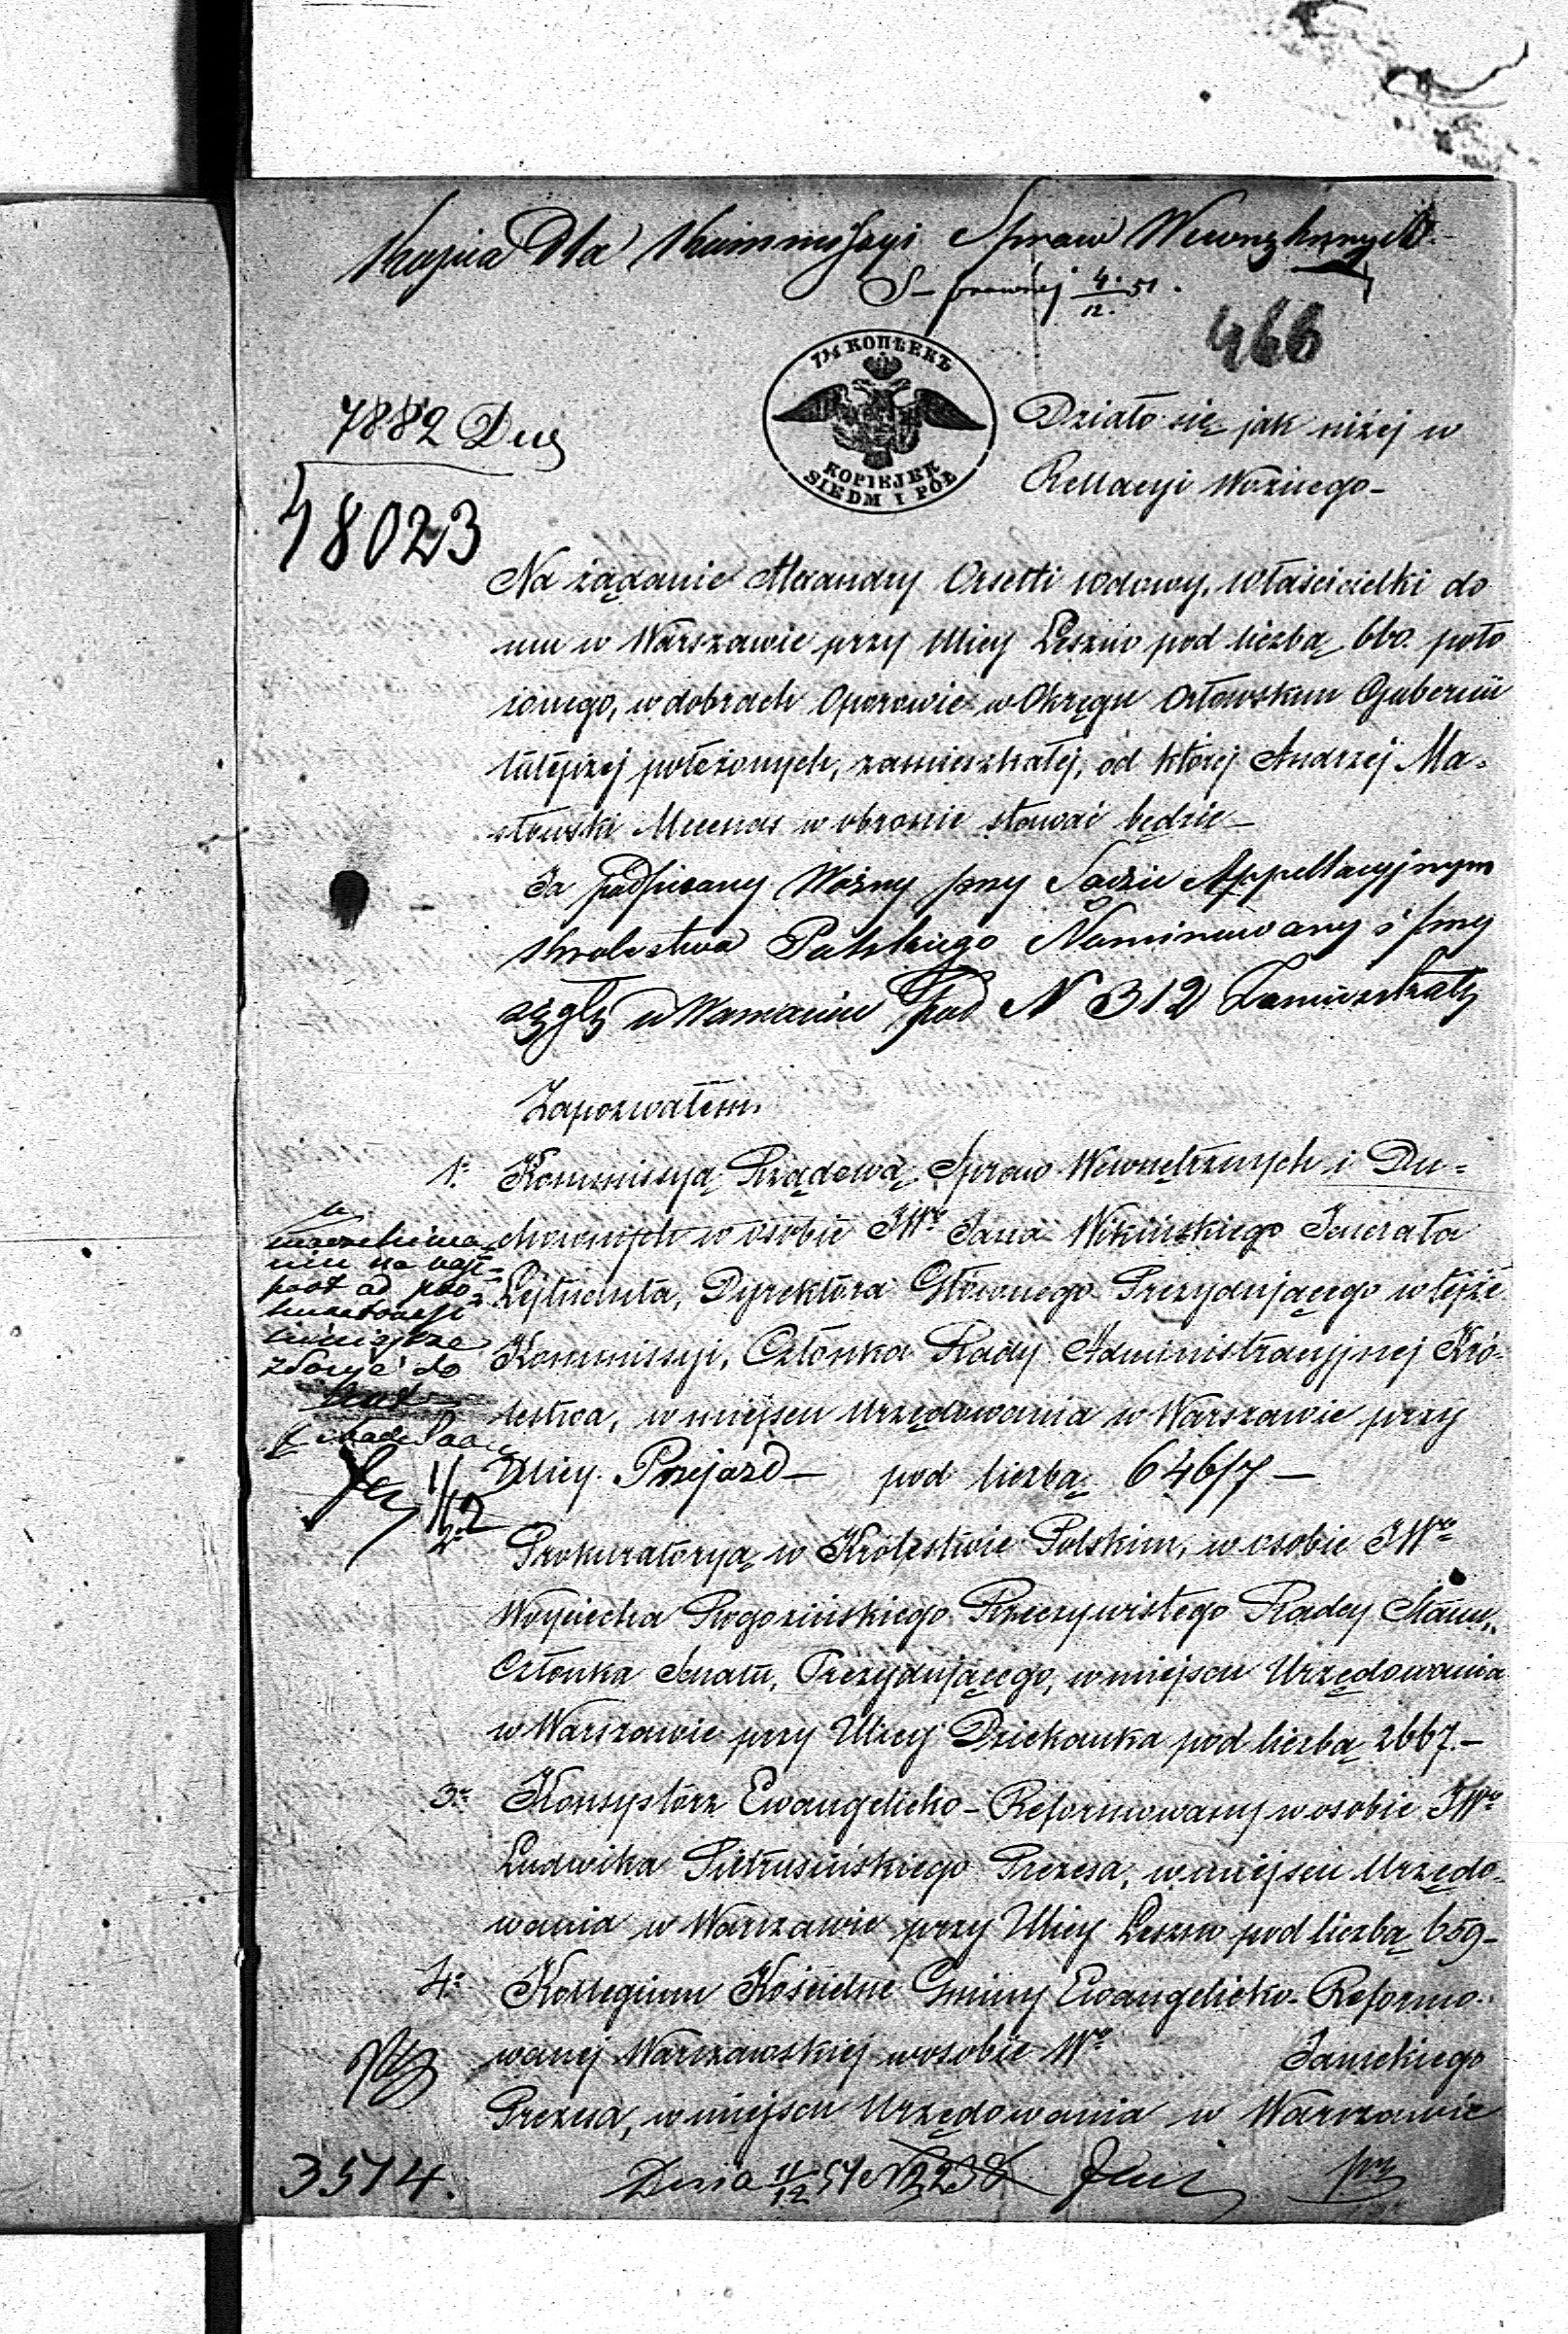 Kopia Dla Kommissyi Spraw Wewnętrznych
4/12 51.
466
7½ КОПѢЕКЪ
KOPIEJEK
SIEDM I PÓŁ
7882
18023
Działo się jak niżej w
Rellacyi Woźnego –
Na żądanie Alexandry Orsetti wdowy, właścicielki do
mu w Warszawie przy Ulicy Leszno pod liczbą 660. poło
żonego, w dobrach Oporowie w Okręgu Orłowskim Gubernii
tutejszej położonych, zamieszkałej, od której Andrzej Ma-
słowski Mecenas w obronie stawać będzie –
Ja podpisany Woźny przy Sądzie Appellacyjnym
Królestwa Polskiego Nominowany i przy
sięgły w Warszawie pod N 312 Zamieszkały
Zapozwałem.
1º Kommissyą Rządową Spraw Wewnętrznych i Du-
chownych w osobie JWº Jana Wikińskiego Jenerała
Lejtnenta, Dyrektora Głównego Prezydującego w tejże
Kommissyi, Członka Rady Administracyjnej Kró-
lestwa, w miejscu urzędowania w Warszawie przy
Ulicy Przejazd – pod liczbą 646/7 –
Prokuratoryą w Królestwie Polskim, w osobie JWº
Woyciecha Rogozińskiego Rzeczywistego Radcy Stanu,
Członka Senatu, Prezydującego, w miejscu Urzędowania
w Warszawie przy Ulicy Dziekanka pod liczbą 2667. –
3º Konsystorz Ewangelicko-Reformowany w osobie JWº
Ludwika Pietrusińskiego Prezesa, w miejscu Urzędo-
wania w Warszawie przy Ulicy Leszno pod liczbą 659 –
4º Kollegium Kościelne Gminy Ewangelicko-Reformo-
wanej Warszawskiej w osobie Wº Janickiego
Prezesa, w miejscu Urzędowania w Warszawie
3514.
Dnia 11/12 51
przy